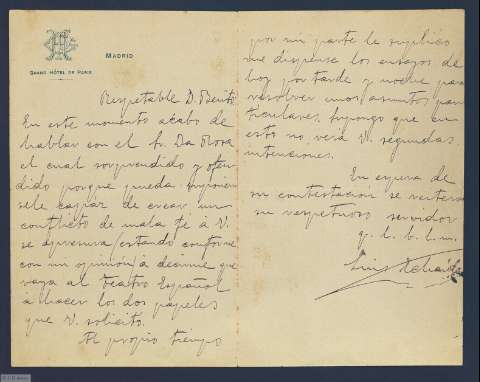 Madrid
Grand Hôtel de Paris
Respetable D. Benito
En este momento acabo de
hablar con el Sr. Da Rosa
el cual sorprendido y ofen
dido porque pueda suponer
sele capaz de crear un
conflicto de mala fé á V.
se apresura (estando conforme
con mi opinión) á decirme que
vaya al teatro Español
á hacer los dos papeles
que V. solicitó.
Al propio tiempo
por mi parte le suplico
me dispense los ensayos de
hoy por tarde y noche para
resolver unos asuntos par
ticulares, supongo que en
esto no verá V. segundas
intenciones.
En espera de
su contestación se reitera
su respetuoso servidor
q. l. b. l. m.